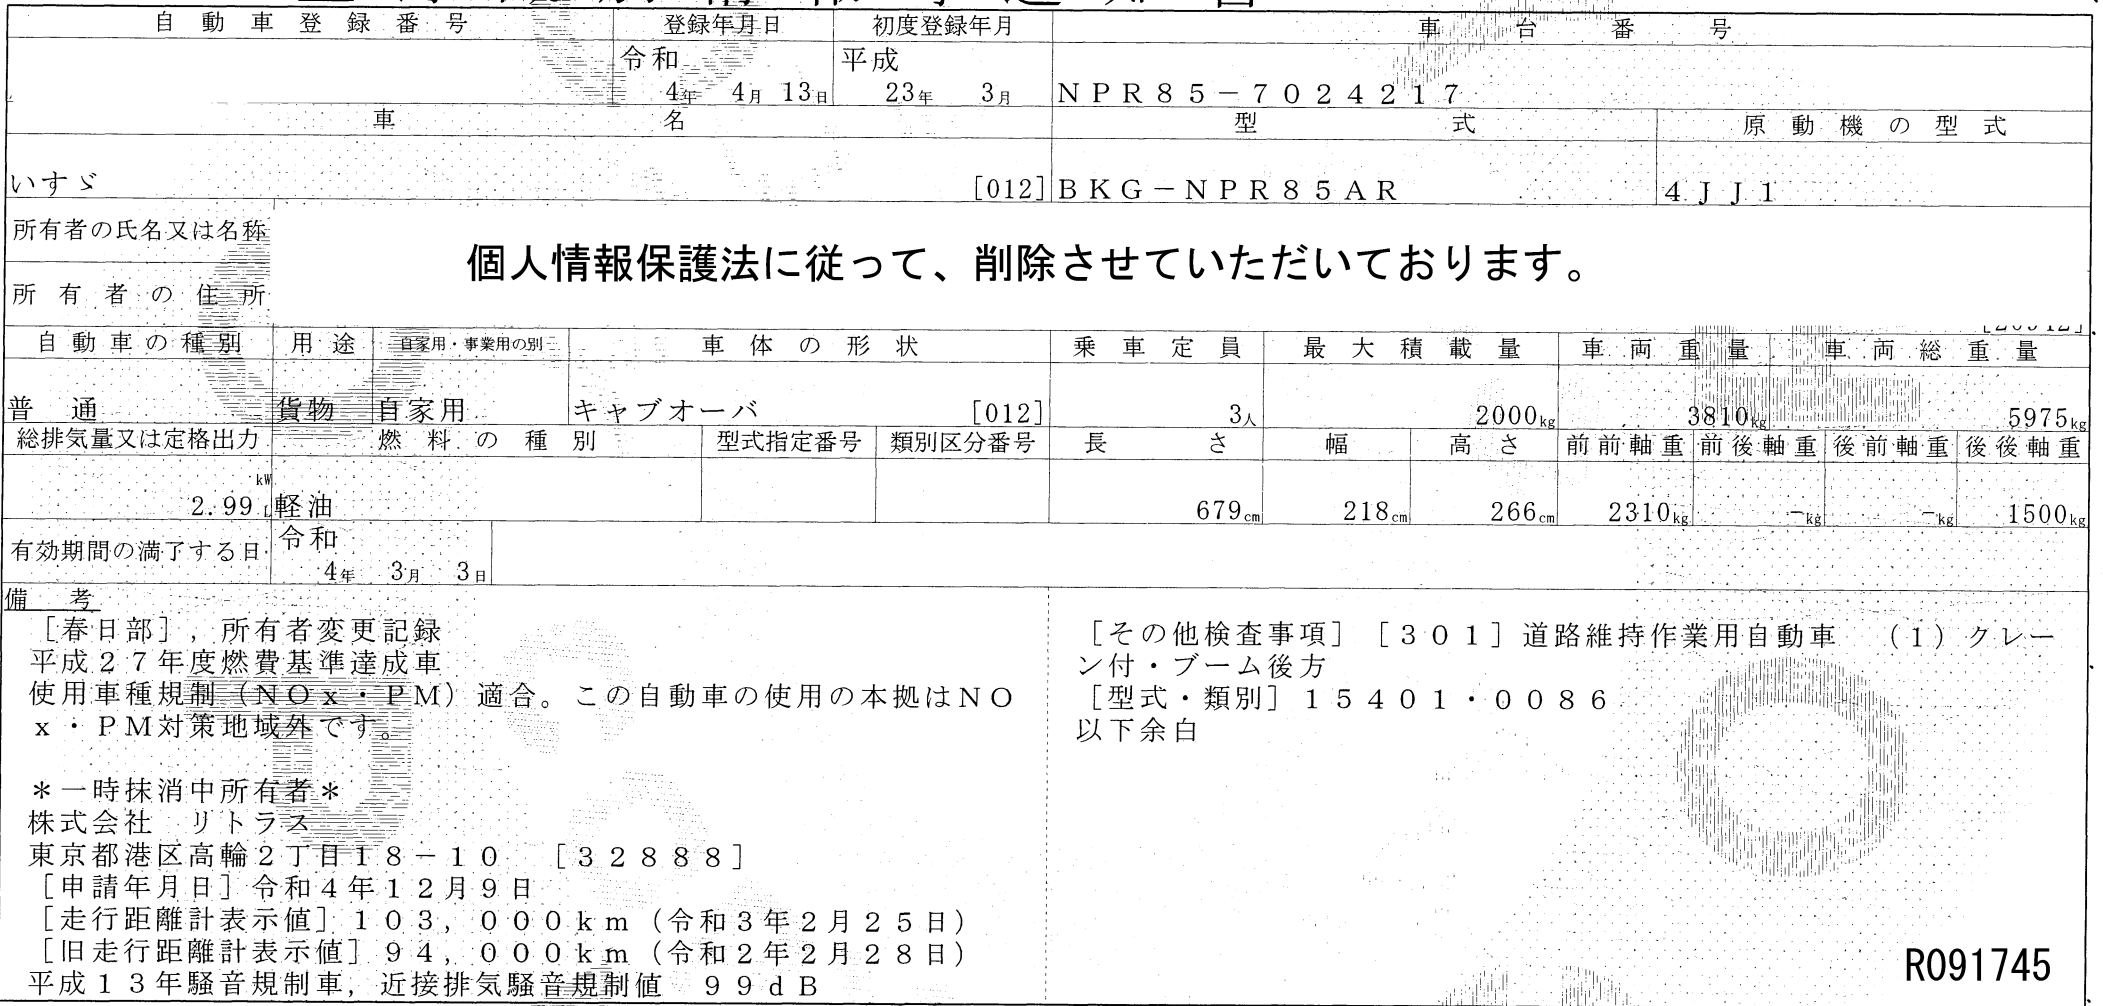 自動車登録番号 登録年月日 初度登録年月 車台番号
令和 平成
4年 4月 13日 23年 3月 NPR85-7024217
車名 型式 原動機の型式
いすゞ [012] BKG-NPR85AR 4JJ1
所有者の氏名又は名称
個人情報保護法に従って、削除させていただいております。
所有者の住所
自動車の種別 用途 自家用・事業用の別 車体の形状 乗車定員 最大積載量 車両重量 車両総重量
普通 貨物 自家用 キャブオーバ [012] 3人 2000kg 3810kg 5975kg
総排気量又は定格出力 燃料の種別 型式指定番号 類別区分番号 長さ 幅 高さ 前前軸重 前後軸重 後前軸重 後後軸重
kW
2.99 L 軽油 679cm 218cm 266cm 2310kg -kg -kg 1500kg
有効期間の満了する日 令和
4年 3月 3日
備考
[春日部],所有者変更記録
平成27年度燃費基準達成車
使用車種規制(NOx・PM)適合。この自動車の使用の本拠はNO
x・PM対策地域外です。
*一時抹消中所有者*
株式会社 リトラス
東京都港区高輪2丁目18-10 [32888]
[申請年月日]令和4年12月9日
[走行距離計表示値]103,000km(令和3年2月25日)
[旧走行距離計表示値]94,000km(令和2年2月28日)
平成13年騒音規制車,近接排気騒音規制値 99dB
[その他検査事項][301]道路維持作業用自動車 (1)クレー
ン付・ブーム後方
[型式・類別]15401・0086
以下余白
R091745